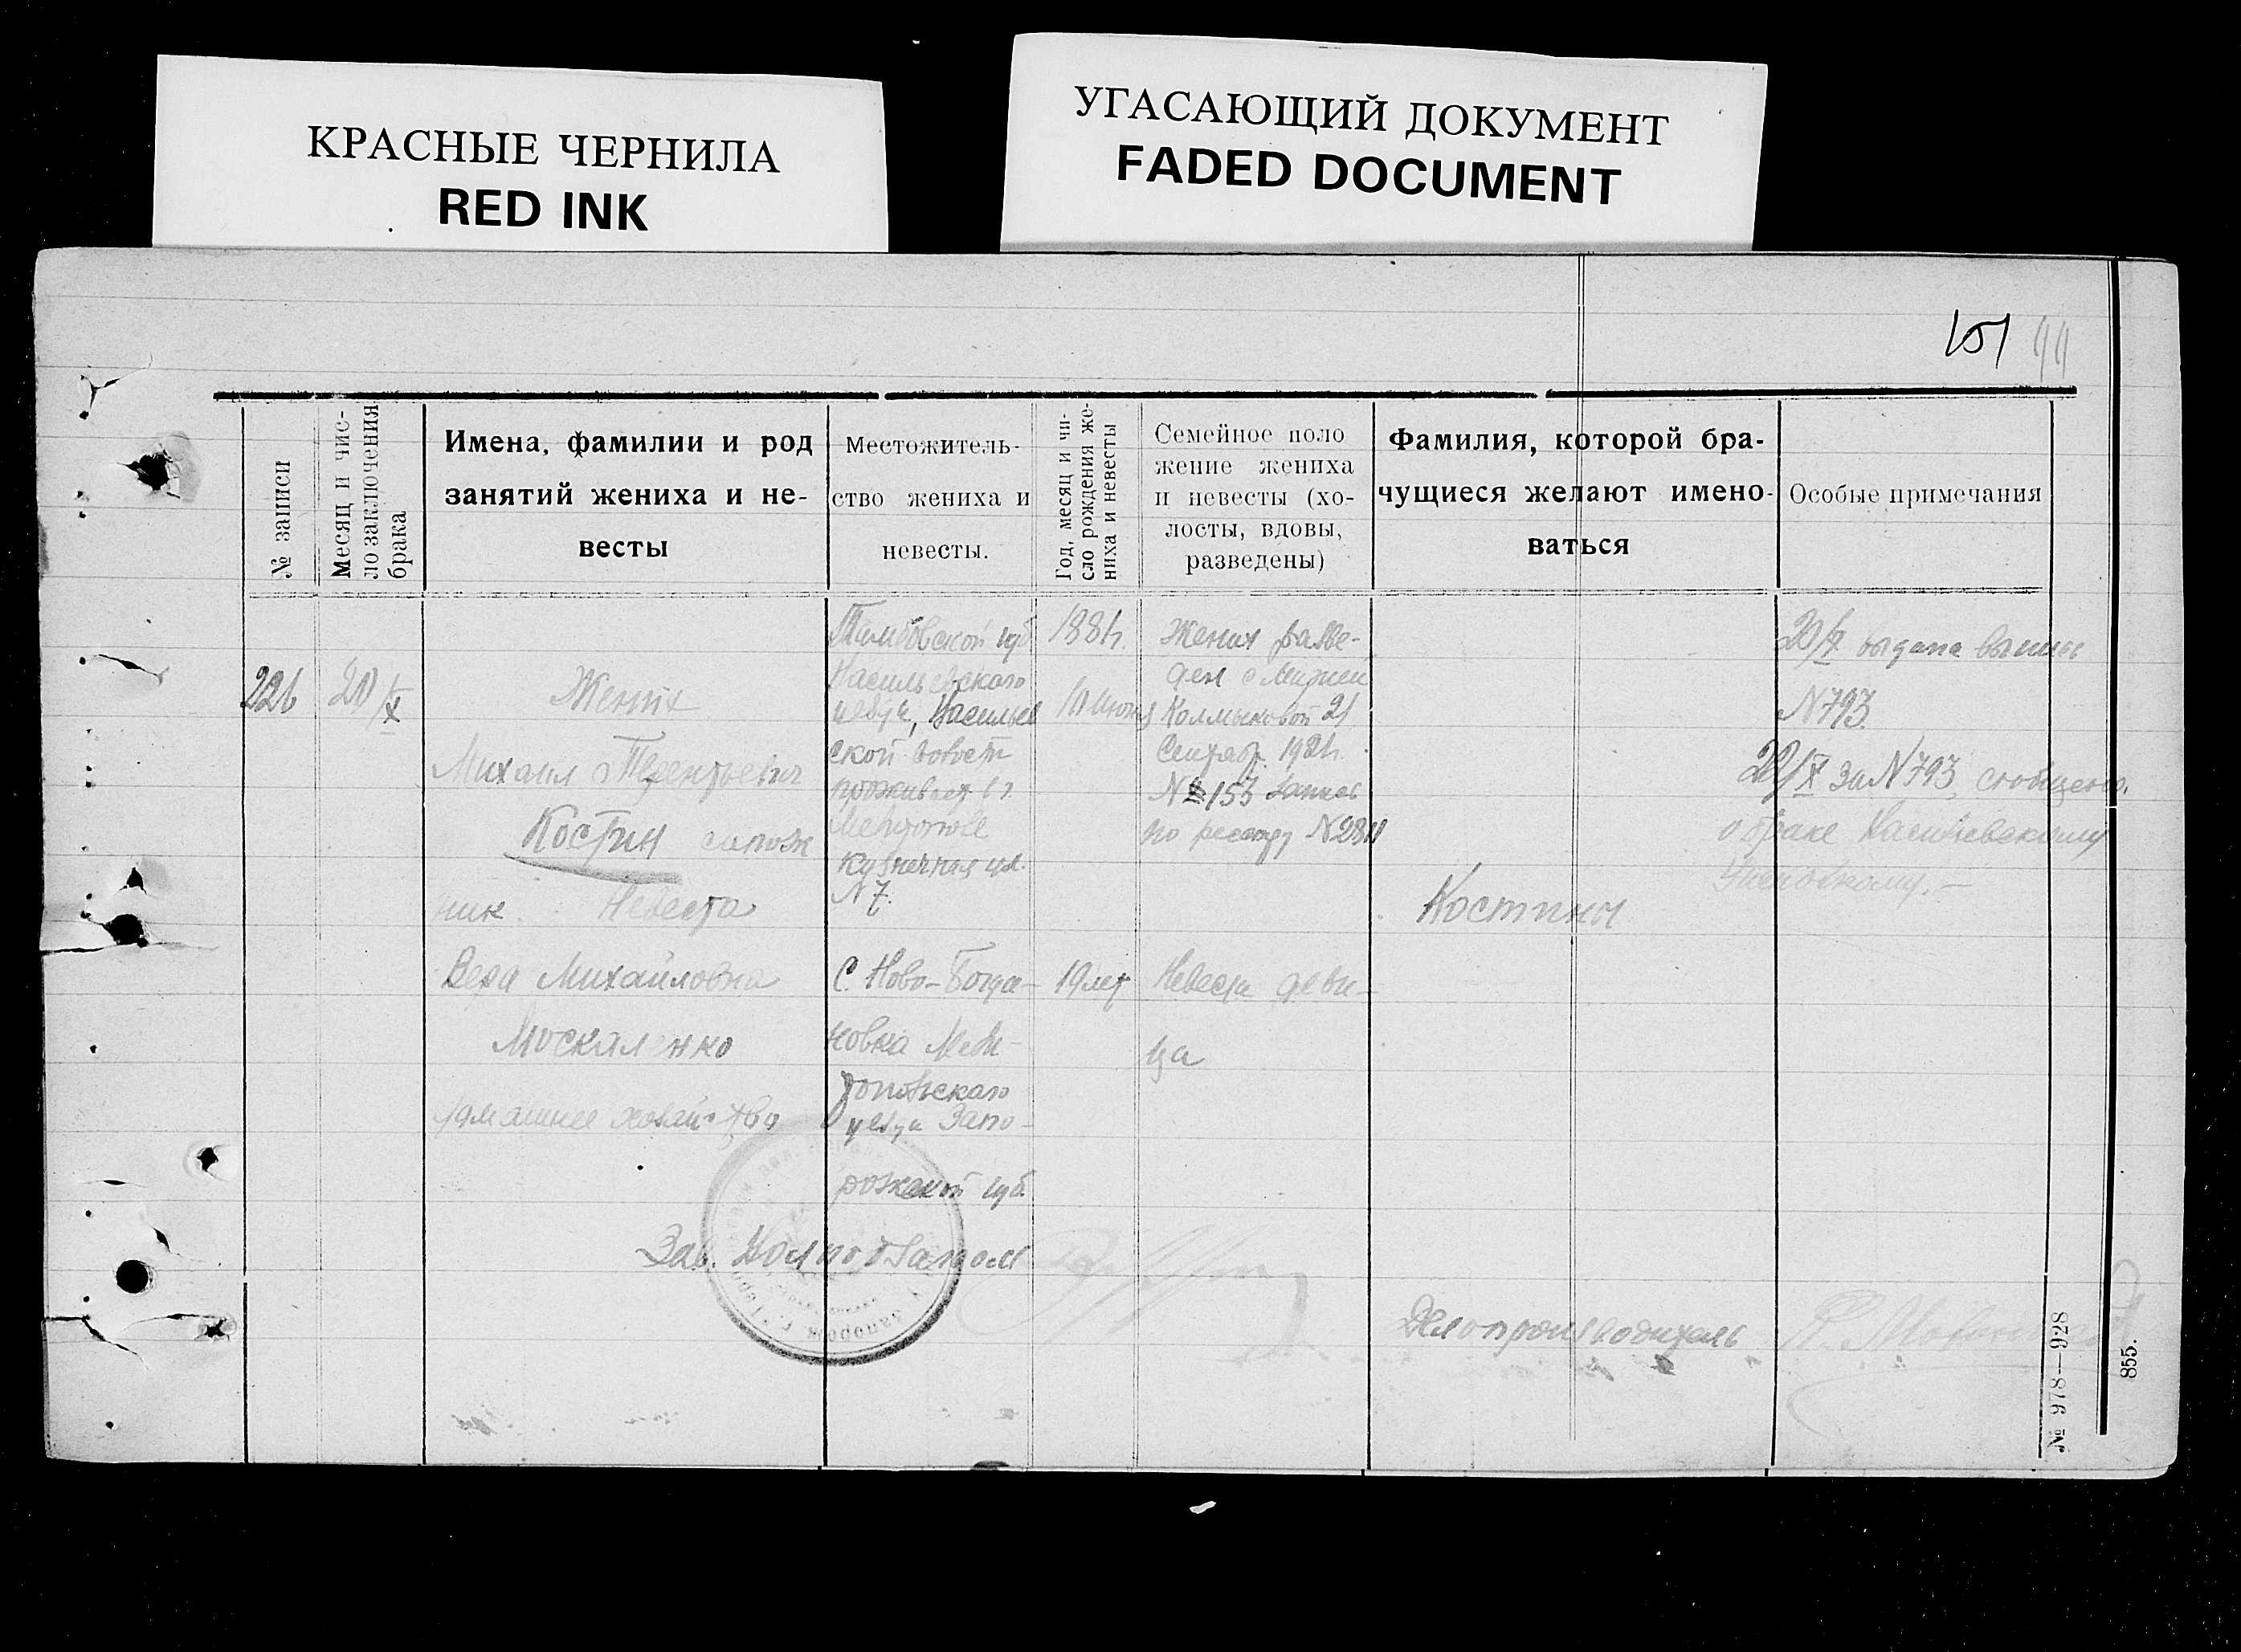 КРАСНЫЕ ЧЕРНИЛА
RED INK
УГАСАЮЩИЙ ДОКУМЕНТ
FADED DOCUMENT
151 99
№ записи
Месяц и чис-
ло заключения
брака
Имена, фамилии и род
занятий жениха и не-
весты
Местожитель-
ство жениха и
невесты.
Год, месяц и чи-
сло рождения же-
ниха и невесты
Семейное поло
жение жениха
и невесты (хо-
лосты, вдовы,
разведены)
Фамилия, которой бра-
чущиеся желают имено-
ваться
Особые примечания
226
20/X
Жених
Михаил Терентьевич
Костин сапож
ник. Невеста
Вера Михайловна
Москаленко
домашнее хозяйство
Тамбовской губ
Васильевского
уезда, Васильев
ской волости
проживает в г.
Мелитополе
Кузнечная ул.
N 7.
С. Ново-Богда-
новка Мели-
топольского
уезда Запо-
рожской губ.
1881г.
10 июня
19 лет
Жених разве-
ден с Марией
Колмыковой 21
Сентябр. 1921г.
N 153 запись
по реестру N
Невеста деви-
ца
Костины
20/X выдана выпись
N 793.
20/X за N 793, сообщено
о браке Васильевскому
Зав.
Делопроизводитель
№ 978—928
855.